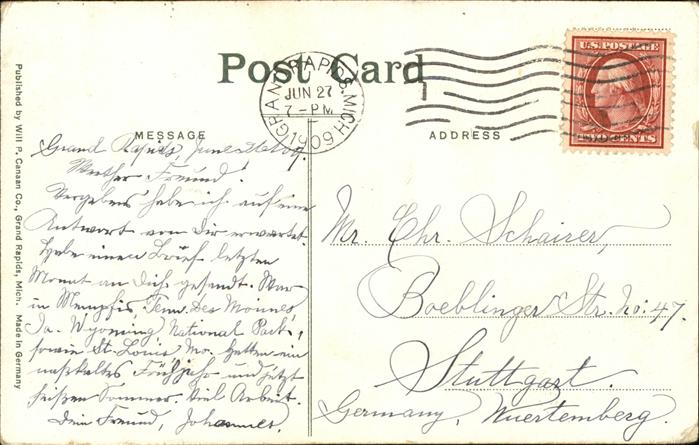 Post Card
GRAND RAPIDS, MICH. 1909
JUN 27
7-PM
1
U.S. POSTAGE
TWO CENTS
MESSAGE
ADDRESS
Published by Will P. Canaan Co., Grand Rapids, Mich. Made in Germany
Grand Rapids,
Werther Freund!
Vergebens habe ich auf eine
Antwort von Dir erwartet.
Habe einen Brief letzten
Monat an Dich gesandt. War
in Memphis, Tenn. Des Moines
Ia. Wyoming National Park,
sowie St. Louis Mo. Hatten ein
naßkaltes Frühjahr und jetzt
heißen Sommer. Viel Arbeit.
Dein Freund, Johannes.
Mr. Chr. Schairer,
Boeblinger Str. No: 47.
Stuttgart.
Germany, Wuertemberg.